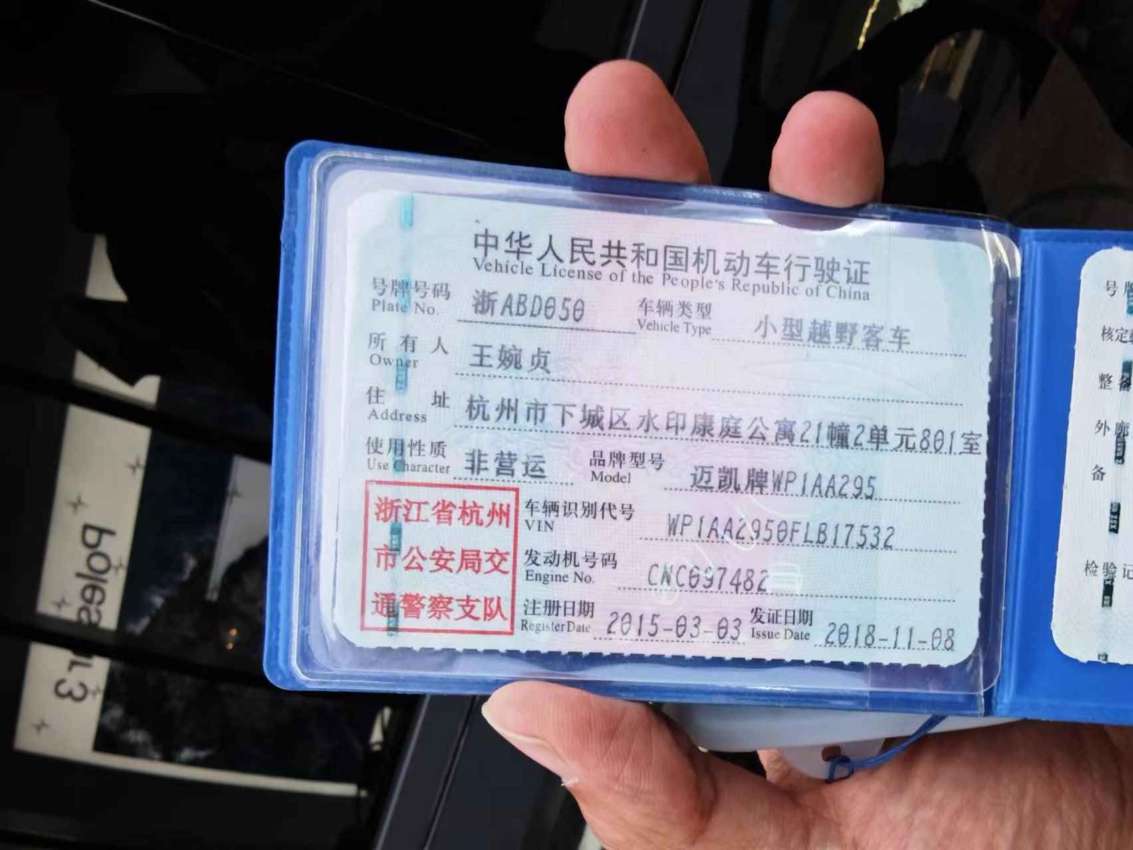 中华人民共和国机动车行驶证
Vehicle License of the People's Republic of China
号牌号码 浙ABD050 车辆类型 小型越野客车
Plate No. Vehicle Type
所有人 王婉贞
Owner
住址 杭州市下城区水印康庭公寓21幢2单元801室
Address
使用性质 非营运 品牌型号 迈凯牌WP1AA295
Use Character Model
浙江省杭州
市公安局交
通警察支队
车辆识别代号 WP1AA2950FLB17532
VIN
发动机号码 CNC097482
Engine No.
注册日期 2015-03-03 发证日期 2018-11-08
Register Date Issue Date
号牌
核定
整备
外廓
备
检验记